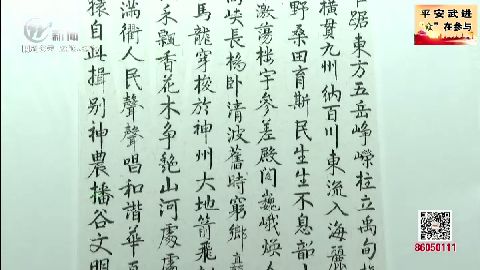 新闻
平安武进
“众”在参与
踞東方五岳崢嶸柱立禹甸
橫貫九州納百川東流入海麗
野桑田育斯民生生不息韶
激蕩樓宇參差殿阁巍峨焕人
峽長橋卧清波舊時窮鄉
馬龍穿梭於神州大地箭飛
禾飄香花木争艷山河處處
满衢人民聲聲唱和諧華
猿自此揖别神農播谷文明
86050111